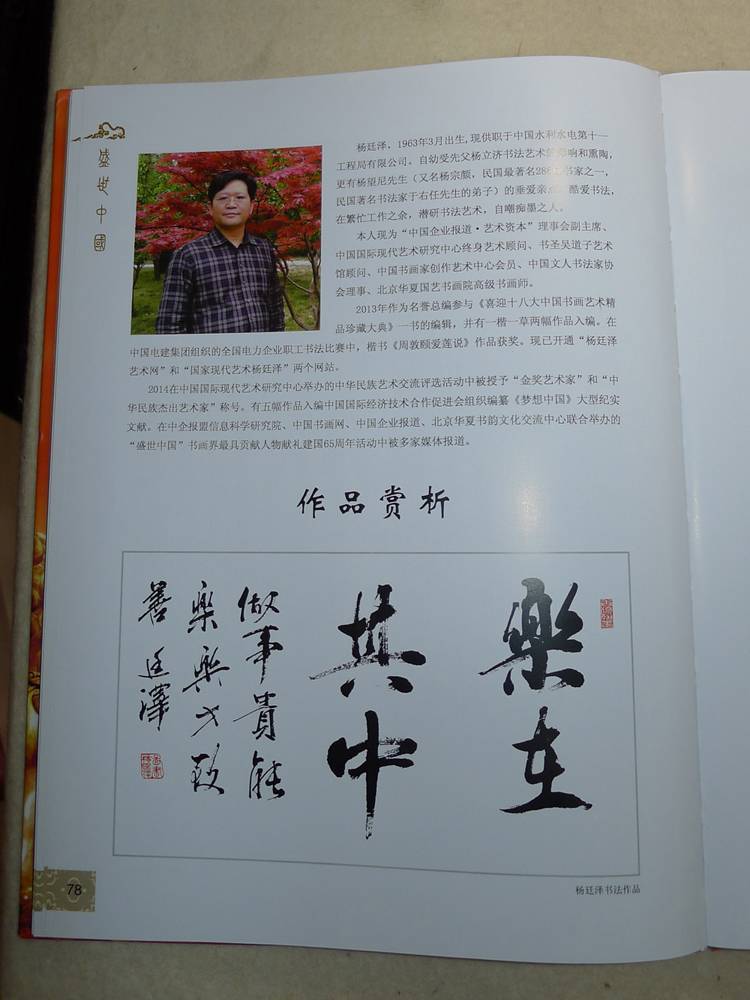 盛世中國
杨廷泽，1963年3月出生,现供职于中国水利水电第十一
工程局有限公司。自幼受先父杨立济书法艺术的影响和熏陶，
更有杨望尼先生（又名杨宗颜，民国最著名28位书家之一，
民国著名书法家于右任先生的弟子）的垂爱亲 酷爱书法，
在繁忙工作之余，潜研书法艺术，自嘲痴墨之人。
本人现为“中国企业报道·艺术资本”理事会副主席、
中国国际现代艺术研究中心终身艺术顾问、书圣吴道子艺术
馆顾问、中国书画家创作艺术中心会员、中国文人书法家协
会理事、北京华夏国艺书画院高级书画师。
2013年作为名誉总编参与《喜迎十八大中国书画艺术精
品珍藏大典》一书的编辑，并有一楷一草两幅作品入编。在
中国电建集团组织的全国电力企业职工书法比赛中，楷书《周敦颐爱莲说》作品获奖。现已开通“杨廷泽
艺术网”和“国家现代艺术杨廷泽”两个网站。
2014在中国国际现代艺术研究中心举办的中华民族艺术交流评选活动中被授予“金奖艺术家”和“中
华民族杰出艺术家”称号。有五幅作品入编中国国际经济技术合作促进会组织编纂《梦想中国》大型纪实
文献。在中企报盟信息科学研究院、中国书画网、中国企业报道、北京华夏书韵文化交流中心联合举办的
“盛世中国”书画界最具贡献人物献礼建国65周年活动中被多家媒体报道。
作品赏析
樂在
其中
做事貴能
樂樂才致
善 廷澤
杨廷泽书法作品
78